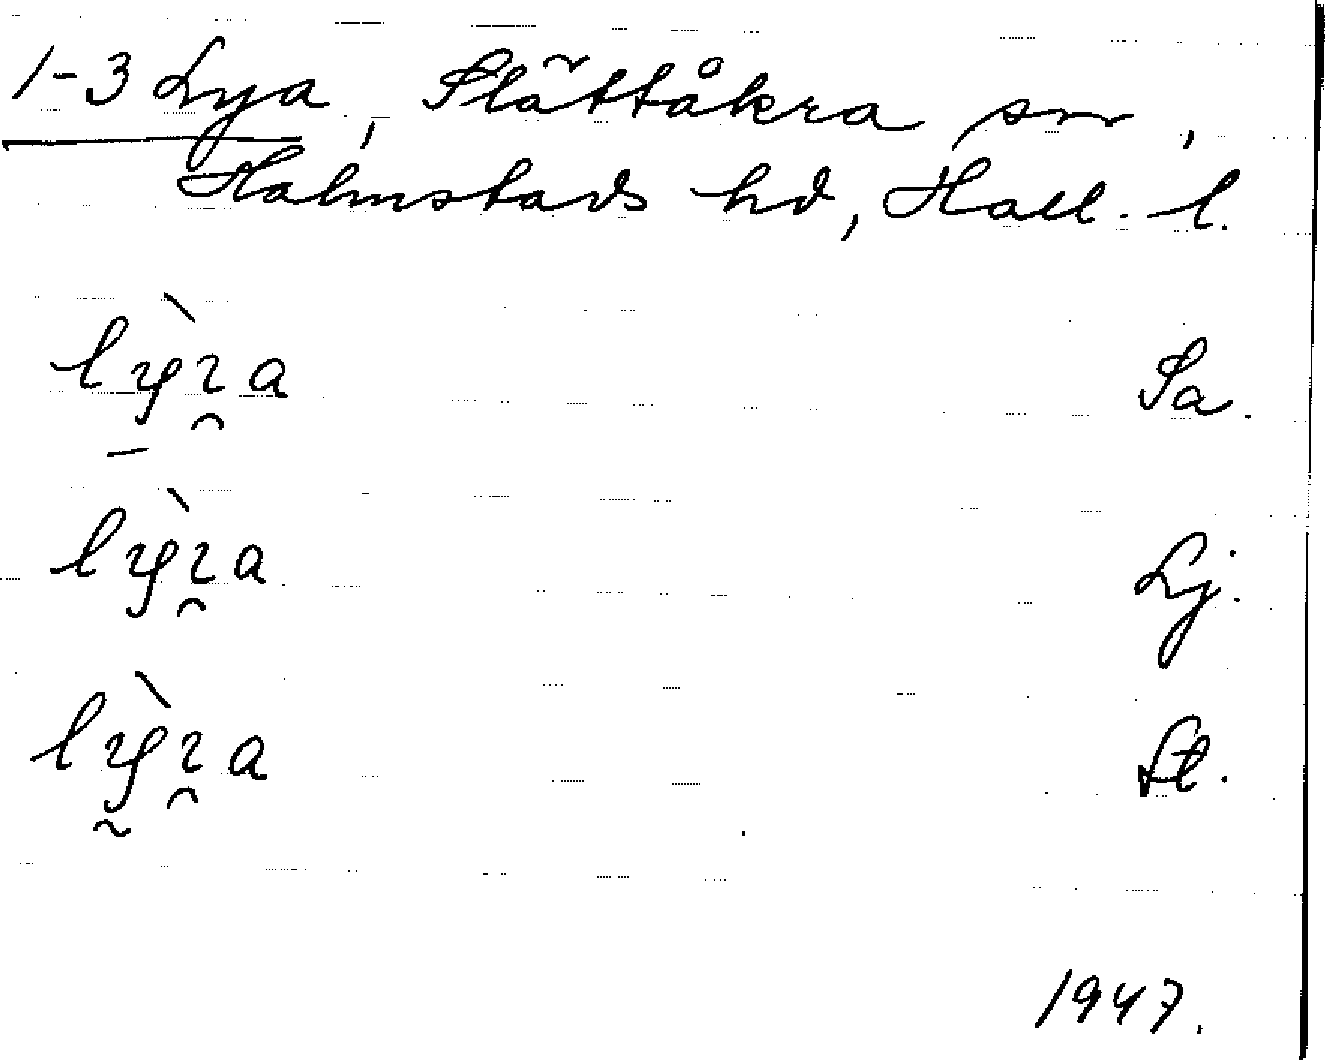 1-3 Lya, Slättåkra sn,
Halmstads hd, Hall. l.
Sa.
Lj.
St.
1947.